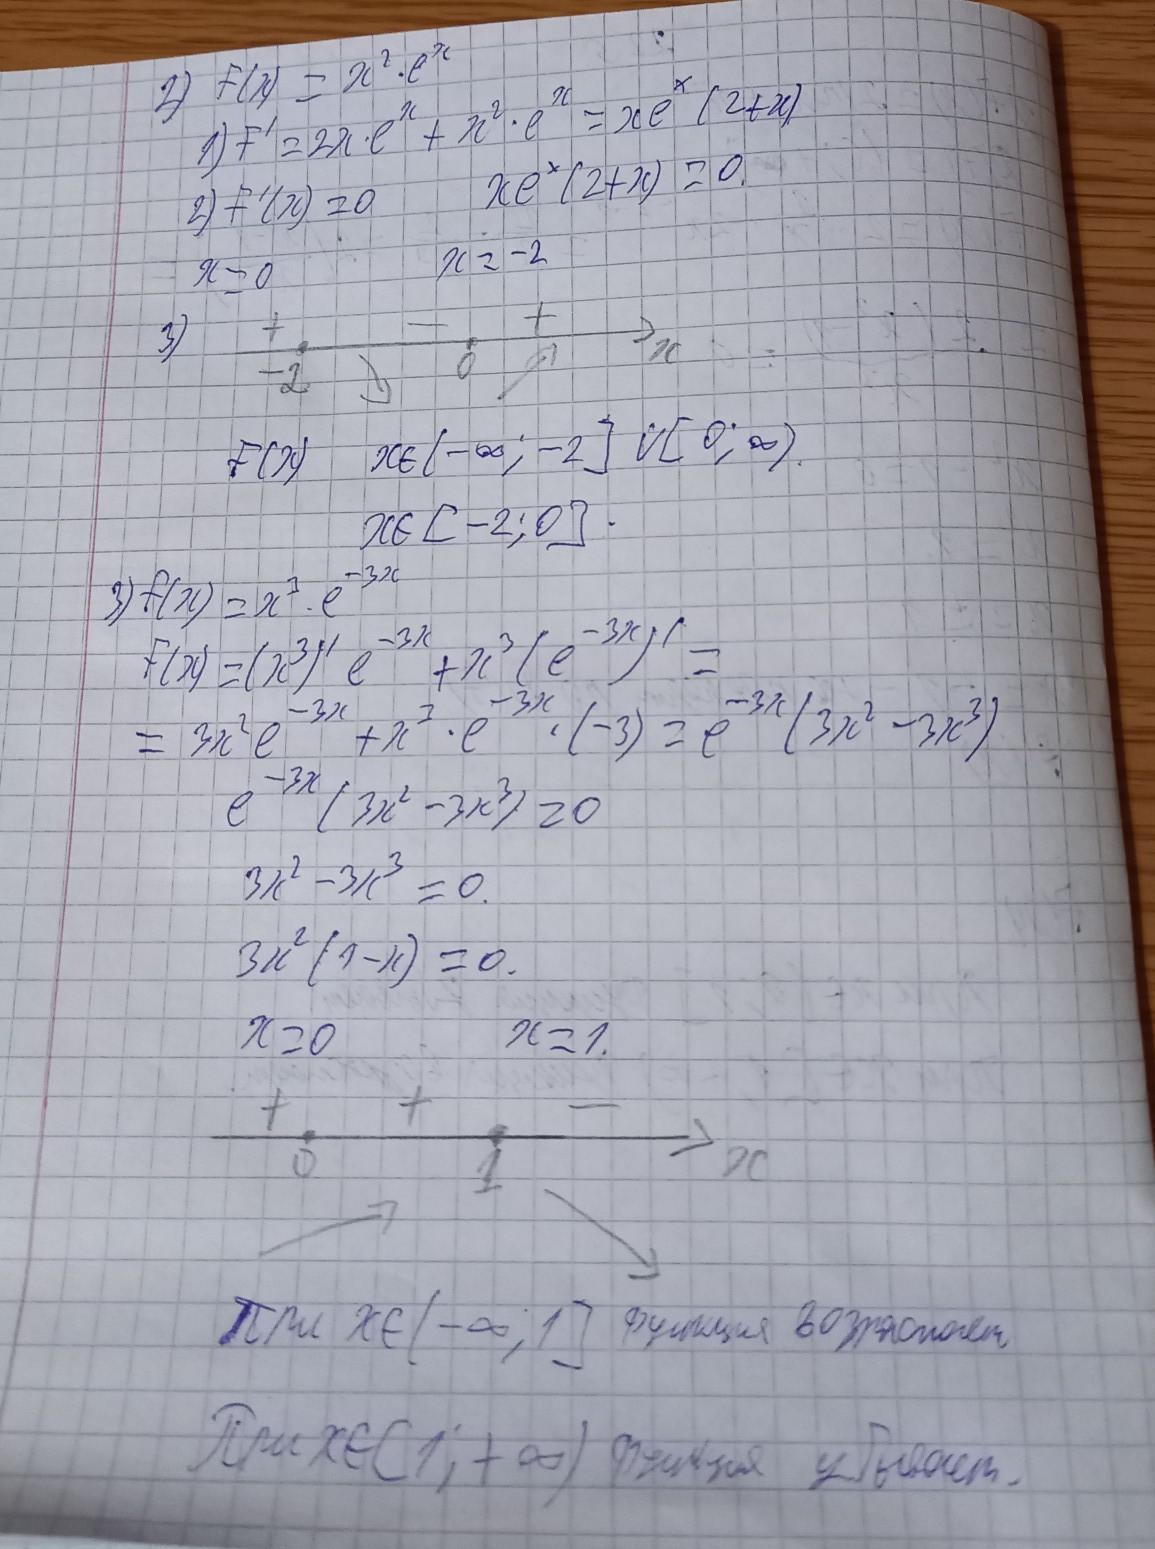 2) f(x) = x² · eˣ
1) f' = 2x · eˣ + x² · eˣ = xeˣ (2+x)
2) f'(x) = 0 xeˣ (2+x) = 0.
x = 0 x = -2
3) + - +
-2 0 x
F(x) x∈(-∞; -2] ∪ [0; ∞).
x∈[-2; 0].
3) f(x) = x³ · e⁻³ˣ
f(x) = (x³)' e⁻³ˣ + x³ (e⁻³ˣ)' =
= 3x² e⁻³ˣ + x³ · e⁻³ˣ · (-3) = e⁻³ˣ (3x² - 3x³)
e⁻³ˣ (3x² - 3x³) = 0
3x² - 3x³ = 0.
3x² (1-x) = 0.
x = 0 x = 1.
+ + -
0 1 x
При x∈(-∞; 1] функция возрастает
При x∈[1; +∞) функция убывает.